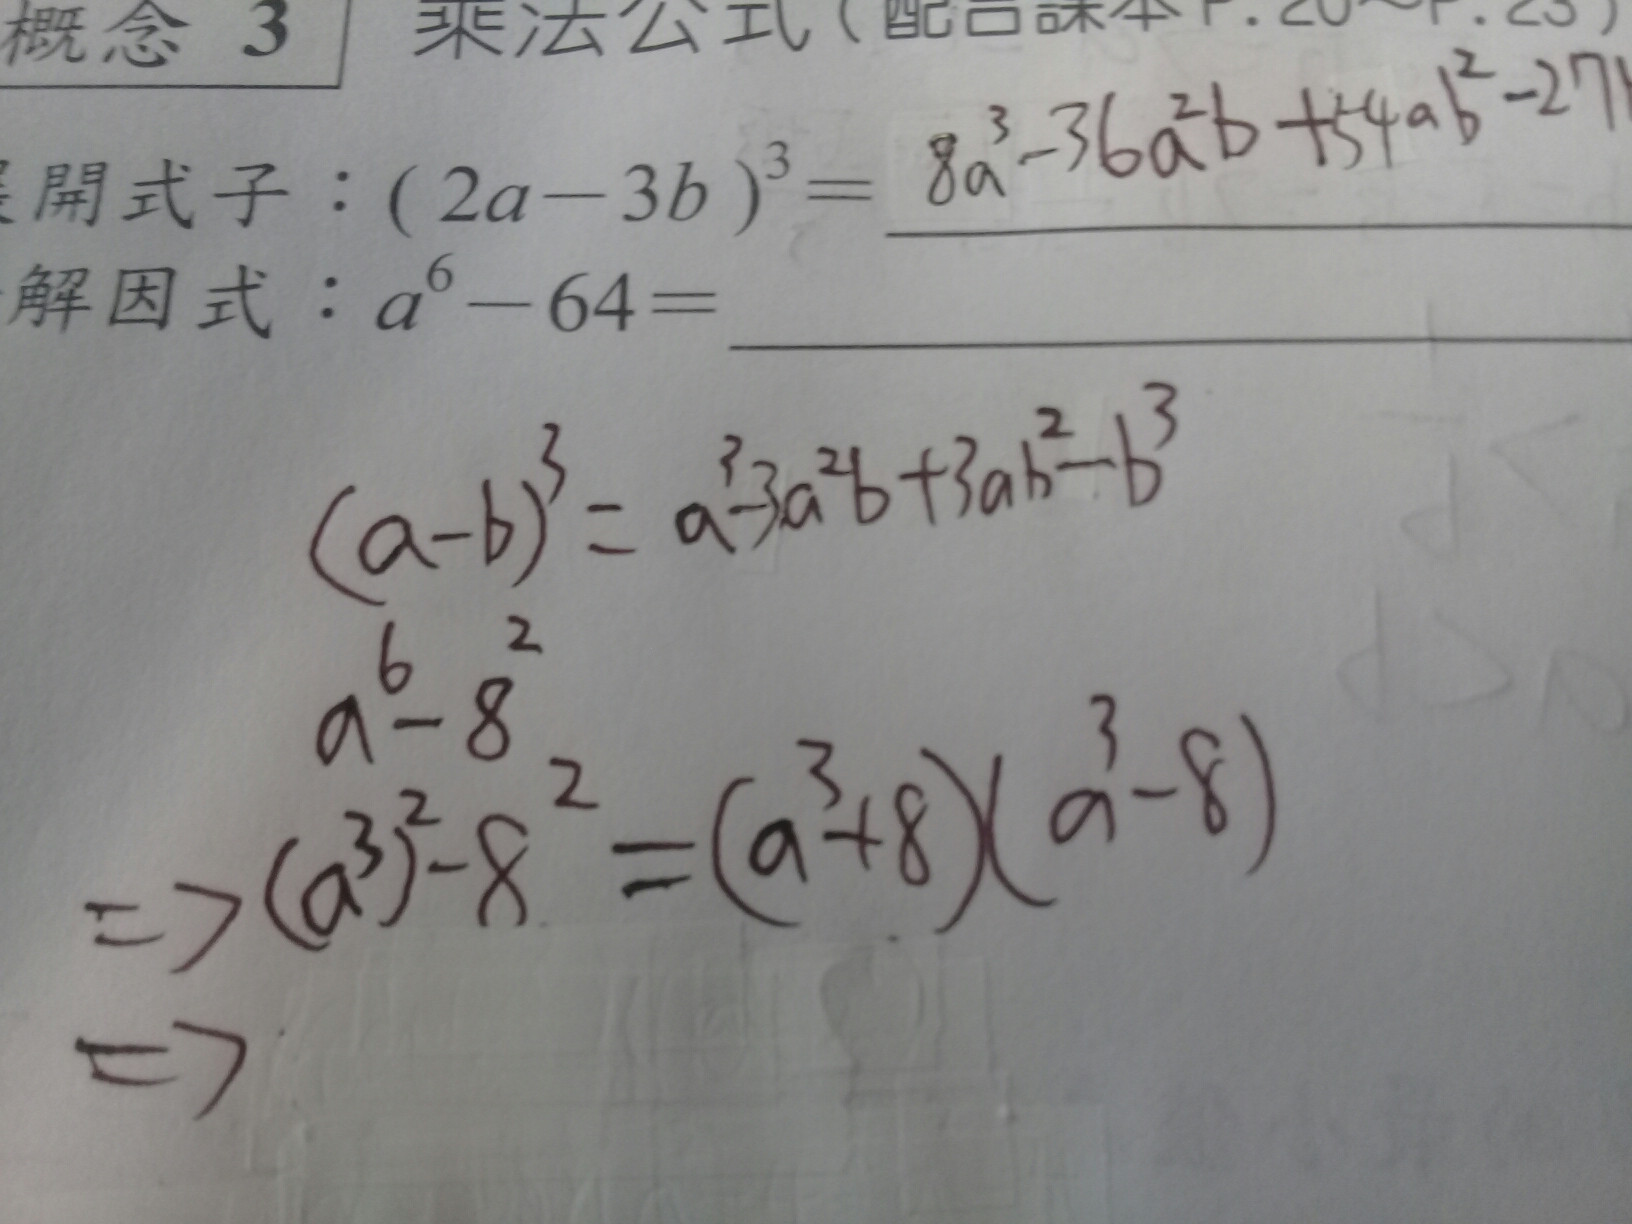 概念 3 乘法公式(配合課本P.20~P.23)
展開式子:(2a-3b)³= 8a³-36a²b+54ab²-27
解因式:a⁶-64=
(a-b)³=a³-3a²b+3ab²-b³
a⁶-8²
=>(a³)²-8²=(a³+8)(a³-8)
=>